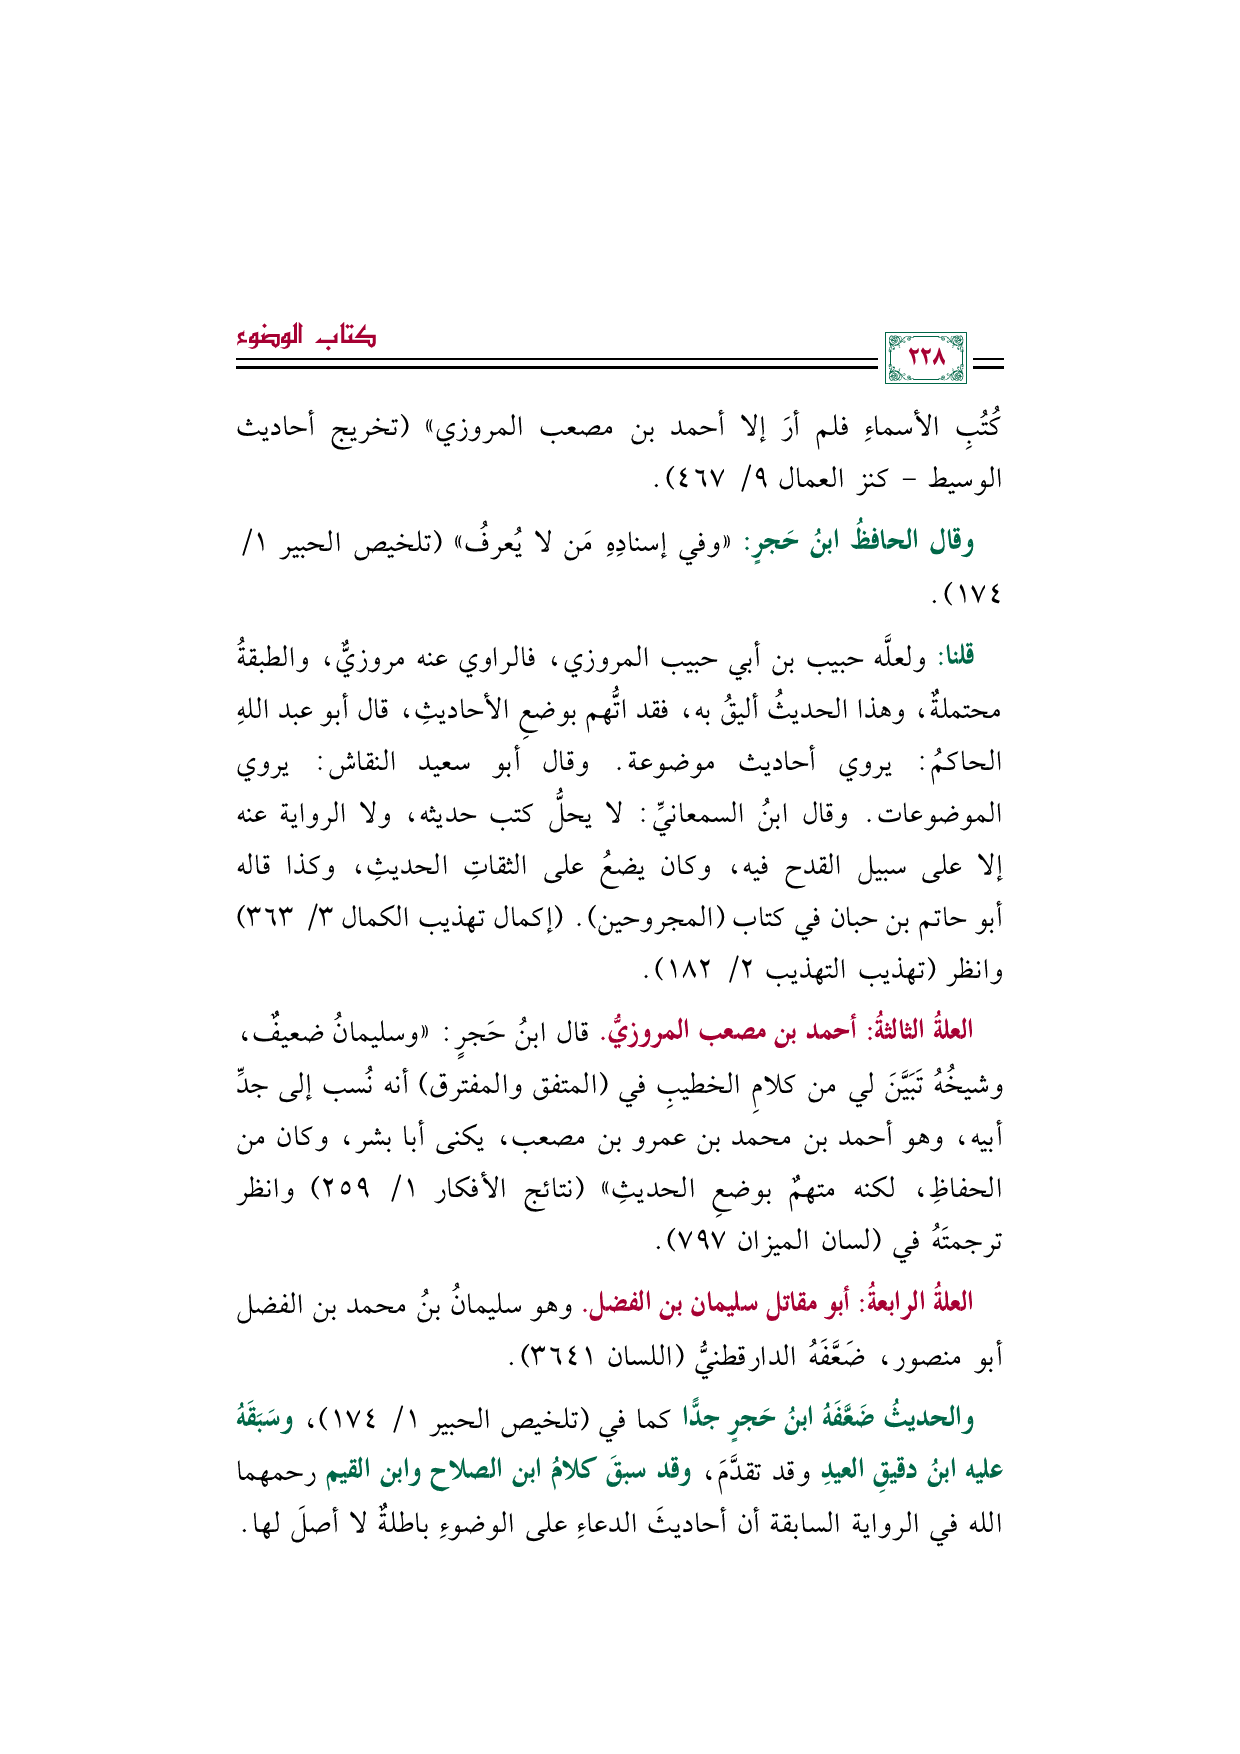 كتاب الوضوء
٢٢٨
كُتُبِ الأسماءِ فلم أرَ إلا أحمد بن مصعب المروزي» (تخريج أحاديث
الوسيط – كنز العمال ٩/ ٤٦٧).
وقال الحافظُ ابنُ حَجرٍ: «وفي إسنادِهِ مَن لا يُعرفُ» (تلخيص الحبير ١/
١٧٤).
قلنا: ولعلَّه حبيب بن أبي حبيب المروزي، فالراوي عنه مروزيٌّ، والطبقةُ
محتملةٌ، وهذا الحديثُ أليقُ به، فقد اتُّهم بوضعِ الأحاديثِ، قال أبو عبد اللهِ
الحاكمُ: يروي أحاديث موضوعة. وقال أبو سعيد النقاش: يروي
الموضوعات. وقال ابنُ السمعانيِّ: لا يحلُّ كتب حديثه، ولا الرواية عنه
إلا على سبيل القدح فيه، وكان يضعُ على الثقاتِ الحديثِ، وكذا قاله
أبو حاتم بن حبان في كتاب (المجروحين). (إكمال تهذيب الكمال ٣/ ٣٦٣)
وانظر (تهذيب التهذيب ٢/ ١٨٢).
العلةُ الثالثةُ: أحمد بن مصعب المروزيُّ. قال ابنُ حَجرٍ: «وسليمانُ ضعيفٌ،
وشيخُهُ تَبَيَّنَ لي من كلامِ الخطيبِ في (المتفق والمفترق) أنه نُسب إلى جدِّ
أبيه، وهو أحمد بن محمد بن عمرو بن مصعب، يكنى أبا بشر، وكان من
الحفاظِ، لكنه متهمٌ بوضعِ الحديثِ» (نتائج الأفكار ١/ ٢٥٩) وانظر
ترجمتَهُ في (لسان الميزان ٧٩٧).
العلةُ الرابعةُ: أبو مقاتل سليمان بن الفضل. وهو سليمانُ بنُ محمد بن الفضل
أبو منصور، ضَعَّفَهُ الدارقطنيُّ (اللسان ٣٦٤١).
والحديثُ ضَعَّفَهُ ابنُ حَجرٍ جدًّا كما في (تلخيص الحبير ١/ ١٧٤)، وسَبَقَهُ
عليه ابنُ دقيقِ العيدِ وقد تقدَّمَ، وقد سبقَ كلامُ ابن الصلاح وابن القيم رحمهما
الله في الرواية السابقة أن أحاديثَ الدعاءِ على الوضوءِ باطلةٌ لا أصلَ لها.